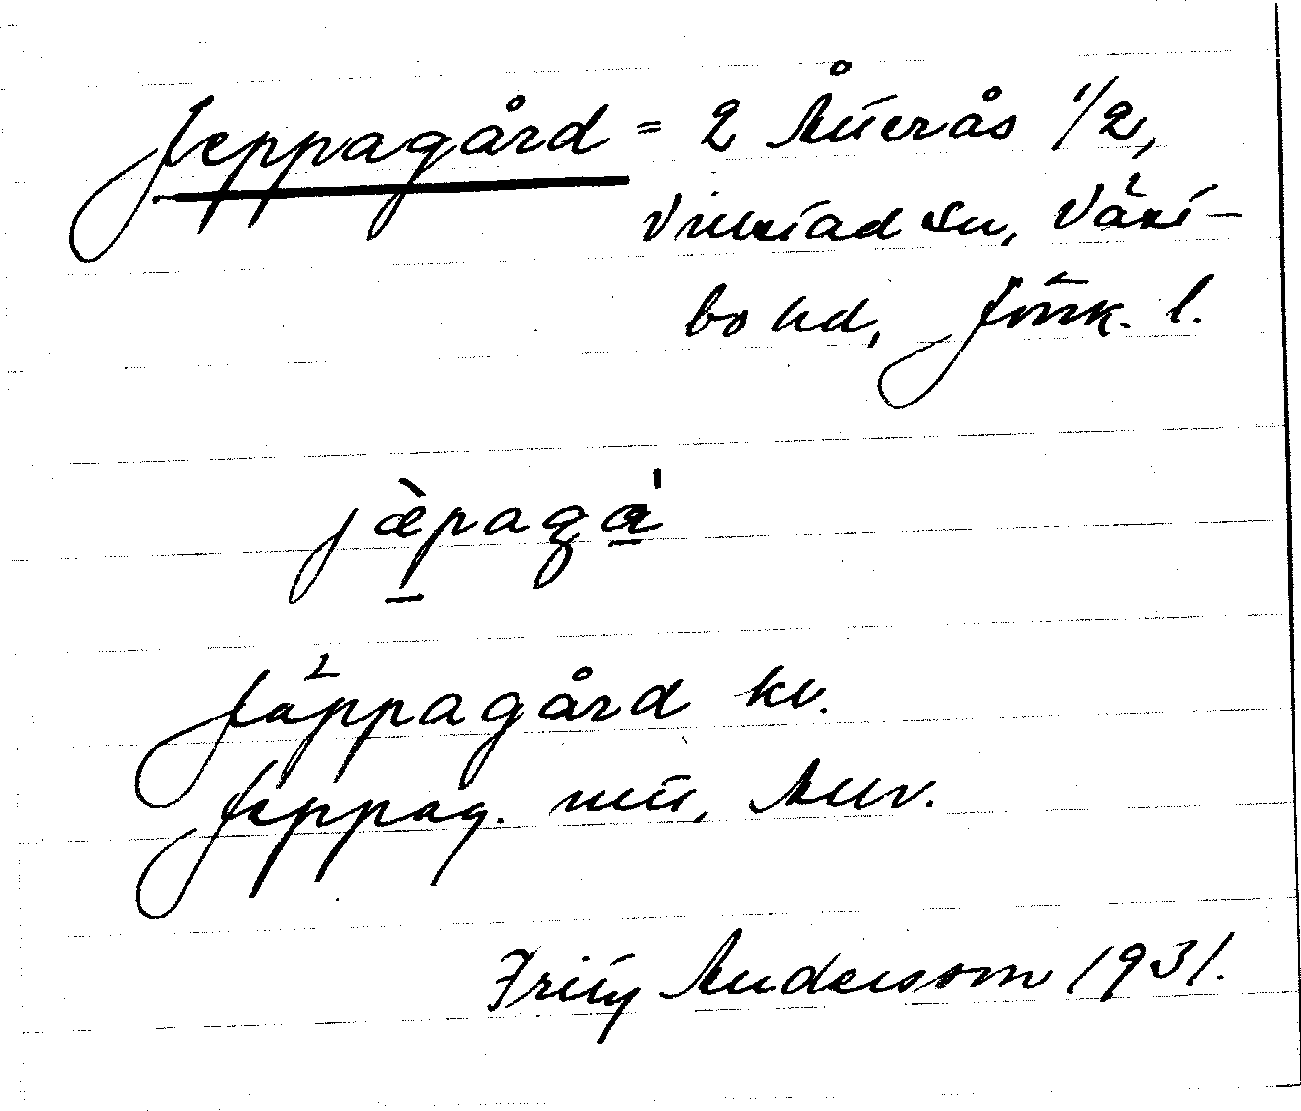 Jeppagård = 2 Återås 1/2,
Villstad sn, Väst-
bo hd, Jönk. l.
jæ̀paga̱
Jäppagård kv.
Jeppag. utt. Auv.
Fritz Andersson 1931.